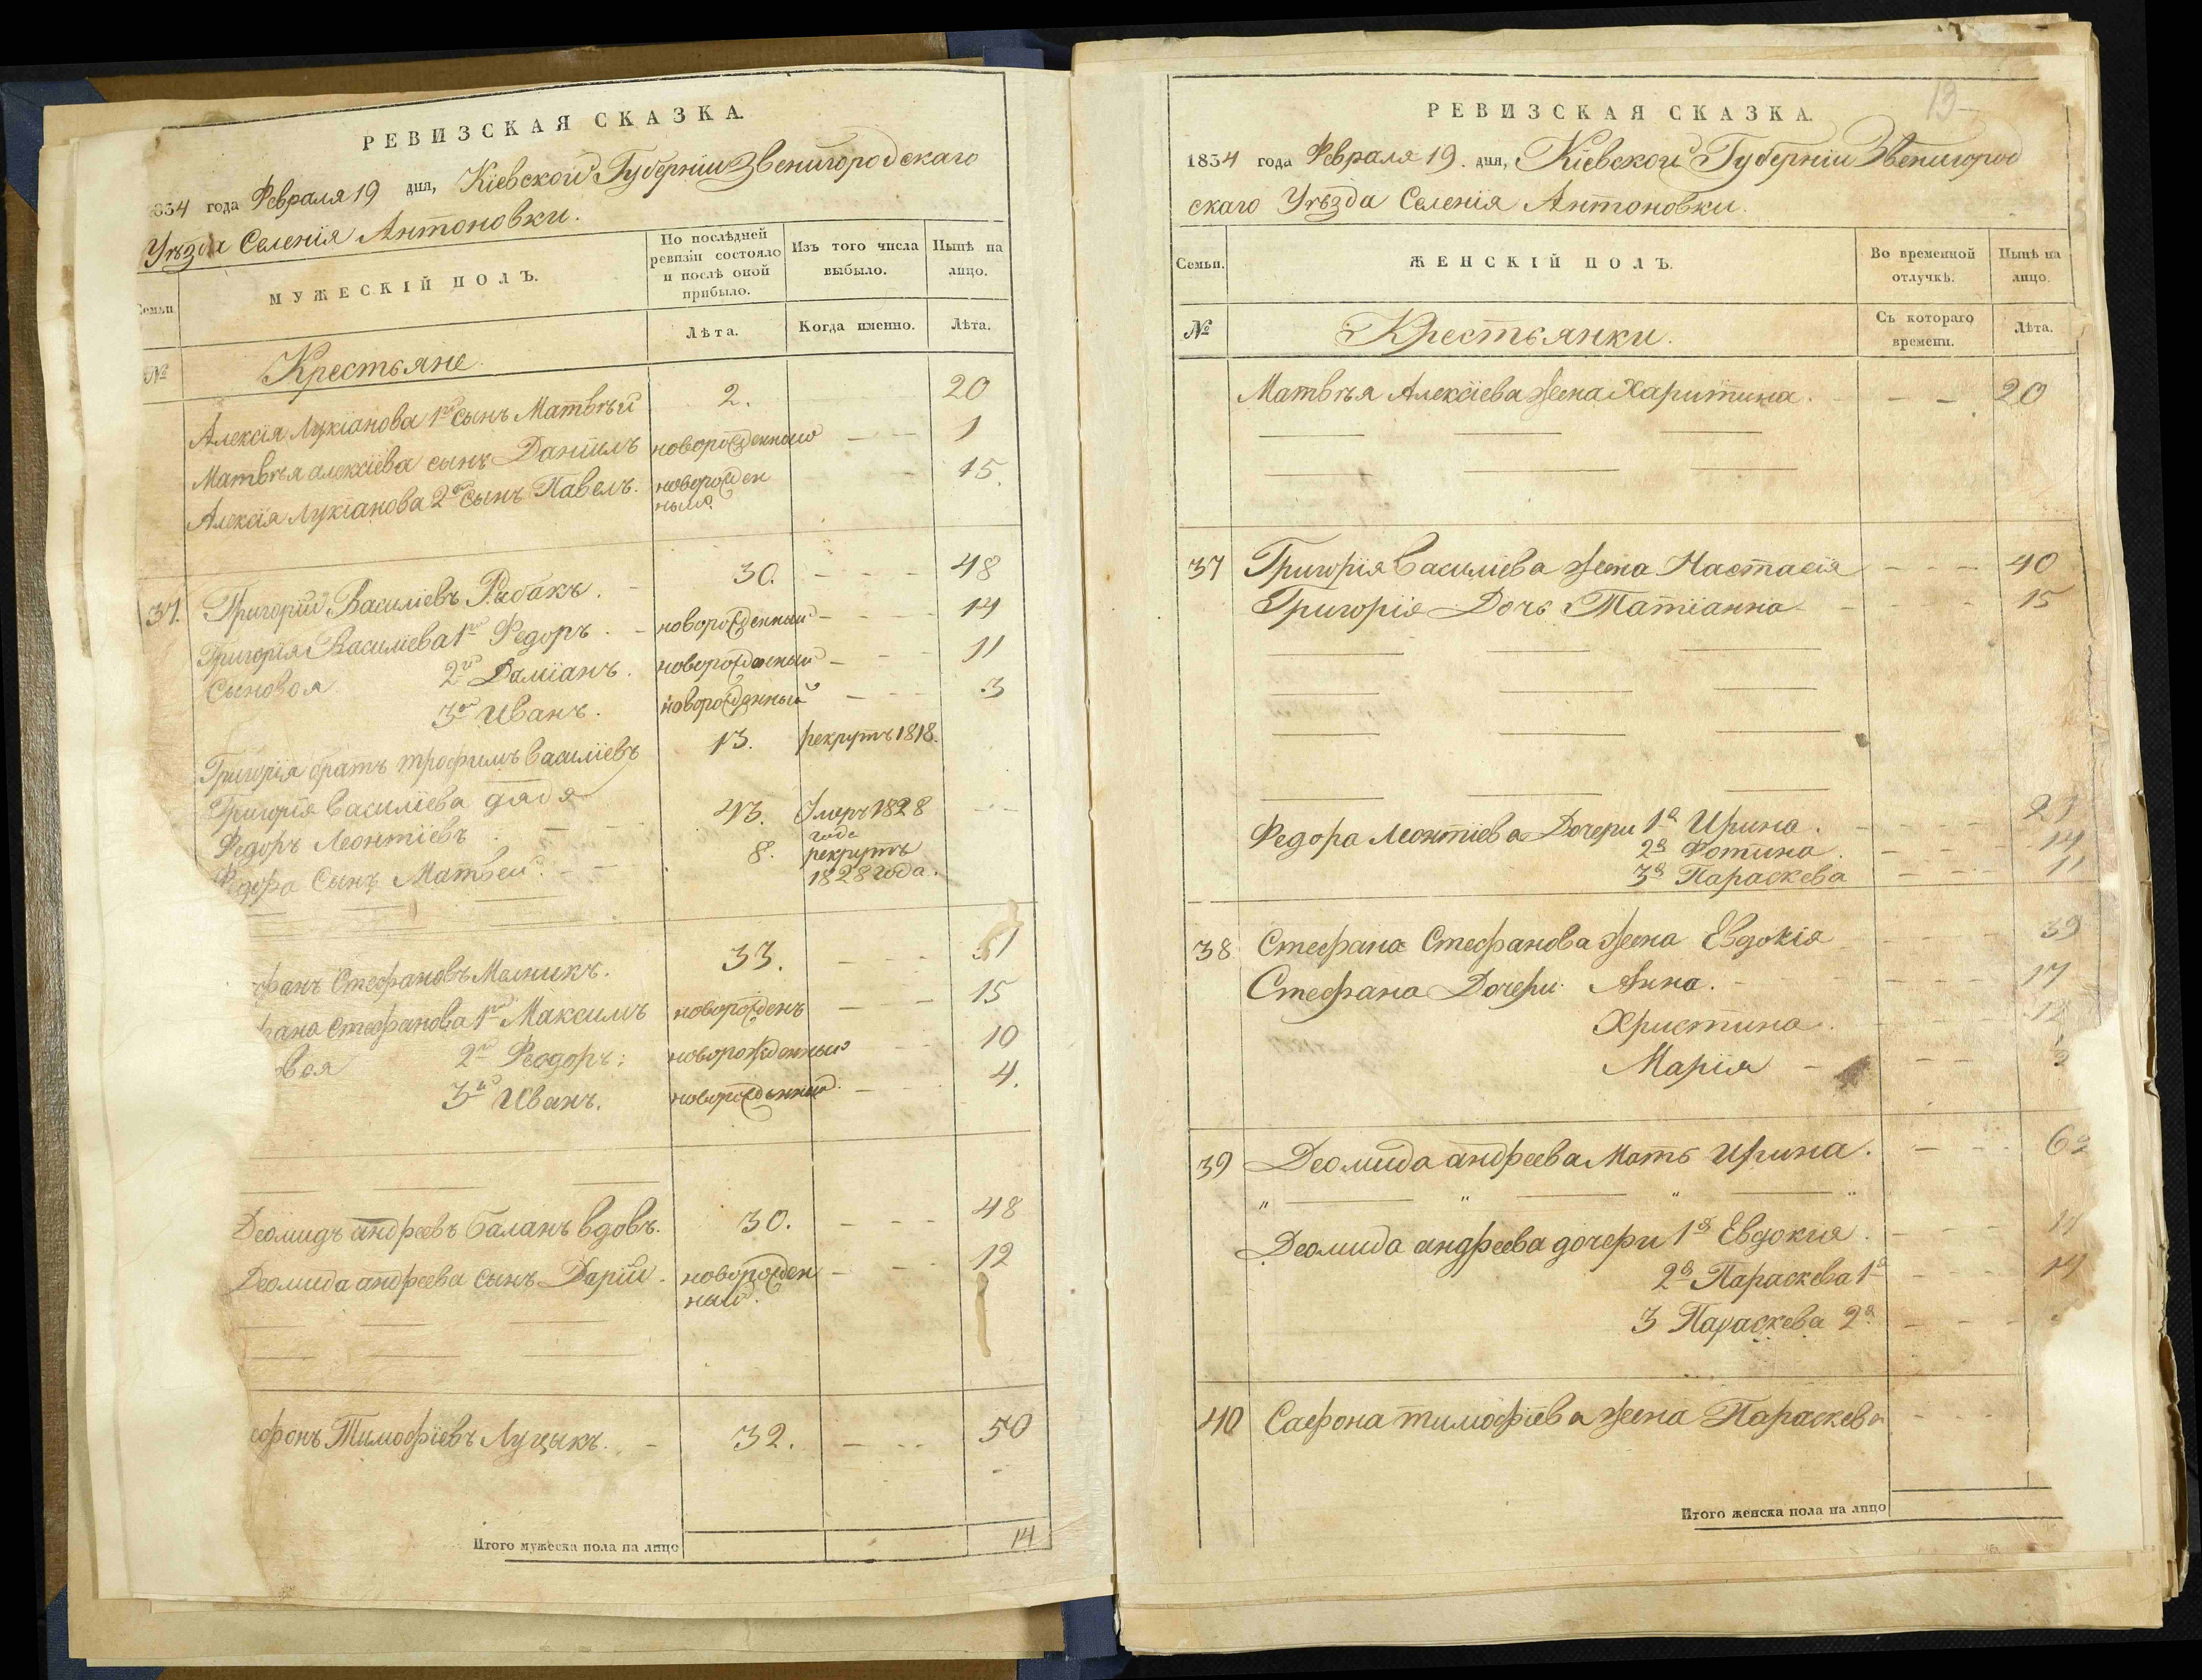 РЕВИЗСКАЯ СКАЗКА.
834 года Февраля 19 дня, Кіевской Губерніи Звенигородскаго
Уѣзда Селенія Антоновки.
Семьи.
МУЖЕСКІЙ ПОЛЪ.
По послѣдней ревизіи состояло и послѣ оной прибыло.
Изъ того числа выбыло.
Нынѣ на лицо.
№
Крестьяне.
Лѣта.
Когда именно.
Лѣта.
Алексія Лукіанова 1й сынъ Матвѣй 2. 20
Матвѣя алексіева сынъ Даніилъ новорожденный — — 1
Алексія Лукіанова 2й сынъ Павелъ. новорожден 15.
ный
37. Григорій Василіевъ Рыбакъ. — 30. — — — 48
Григорія Василіева 1й Федоръ. — новорожденный — — — 14
Сыновья 2й Даміанъ. новорожденный — — — 11
3й Иванъ. новорожденный — — — 3
Григорія братъ трофимъ Василіевъ 13. рекрутъ 1818.
Григорія Василіева дядя
Федоръ Леонтіевъ 43. Умеръ 1828
года
Федора Сынъ Матвей. — — 8. рекрутъ
1828 года.
фанъ Стефановъ Мелникъ. 33. — — — 51
фана Стефанова 1й Максимъ новорожденъ — — 15
овья 2й Феодоръ: новорожденный — — 10
3й Иванъ. новорожденный. — — 4.
Деомидъ андреевъ баланъ вдовъ. 30. — — — 48
Деомида андреева сынъ Дарій. новорожден — — — 12
ный.
офонъ Тимофіевъ Луцыкъ. — 32. — — — 50
Итого мужеска пола на лицо 14
13
РЕВИЗСКАЯ СКАЗКА.
1834 года Февраля 19. дня, Кіевской Губерніи Звенигород
скаго Уѣзда Селенія Антоновки.
Семьи.
ЖЕНСКІЙ ПОЛЪ.
Во временной отлучкѣ.
Нынѣ на лицо.
№
Крестьянки.
Съ котораго времени.
Лѣта.
Матвѣя Алексіева жена Харитина. — — 20
37 Григорія Василіева жена Настасія — — — 40
Григорія Дочь Татіанна — — — 15
Федора Леонтіева Дочери 1я Ирина. — — — 21
2я Фотина. — — — 14
3я Параскева — — — 11
38 Стефана Стефанова жена Евдокія — — — 39
Стефана Дочери Анна. — — — — 17
Христина. — — — 12
Марія — — — 3
39 Деомида андреева Мать Ирина. — — — 6
" " " "
Деомида андреева дочери 1я Евдокія. — — —
2я Параскева 1я — — —
3 Параскева 2я — — —
40 Сафона тимофіева жена Параскева — —
Итого женска пола на лицо